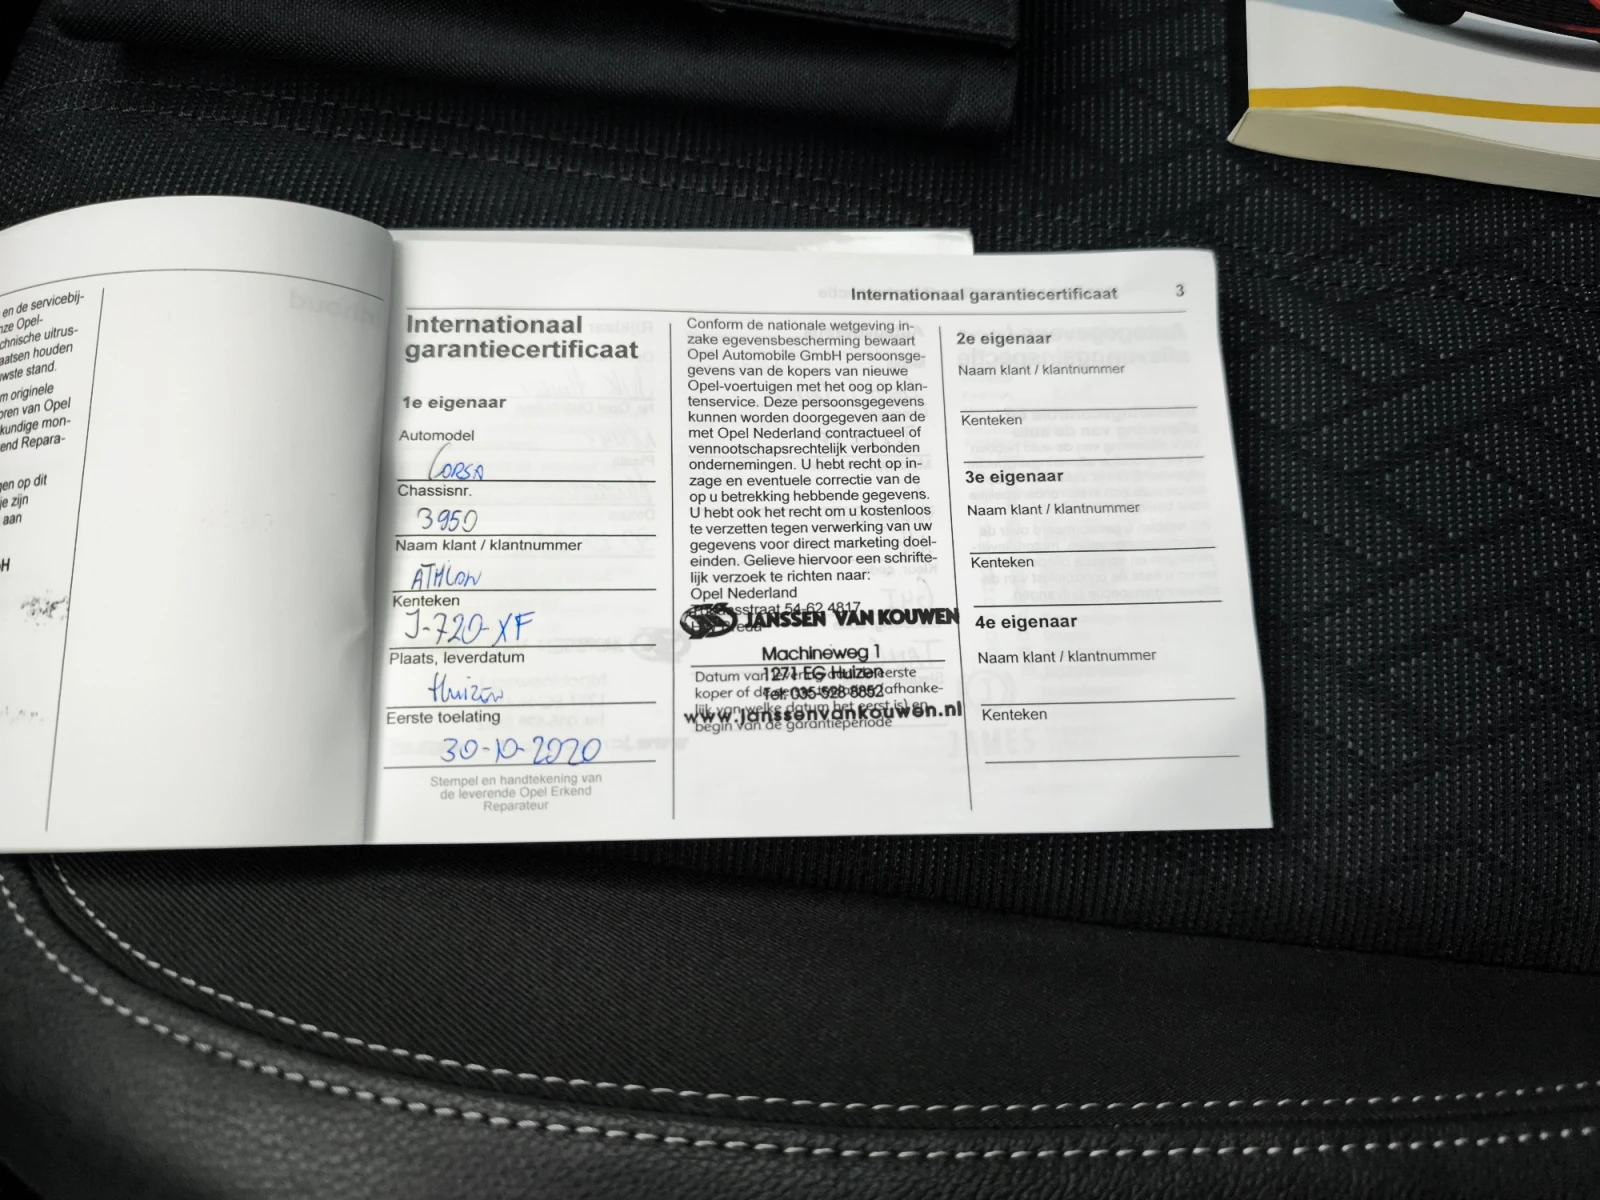 en de servicebij-
nze Opel-
chnische uitrus-
aatsen houden
wste stand.
m originele
oren van Opel
kundige mon-
end Repara-
gen op dit
je zijn
aan
H
Internationaal garantiecertificaat 3
Internationaal
garantiecertificaat
1e eigenaar
Automodel
CORSA
Chassisnr.
3950
Naam klant / klantnummer
ATHLON
Kenteken
J-720-XF
Plaats, leverdatum
Huizen
Eerste toelating
30-10-2020
Stempel en handtekening van
de leverende Opel Erkend
Reparateur
Conform de nationale wetgeving in-
zake egevensbescherming bewaart
Opel Automobile GmbH persoonsge-
gevens van de kopers van nieuwe
Opel-voertuigen met het oog op klan-
tenservice. Deze persoonsgegevens
kunnen worden doorgegeven aan de
met Opel Nederland contractueel of
vennootschapsrechtelijk verbonden
ondernemingen. U hebt recht op in-
zage en eventuele correctie van de
op u betrekking hebbende gegevens.
U hebt ook het recht om u kosteloos
te verzetten tegen verwerking van uw
gegevens voor direct marketing doel-
einden. Gelieve hiervoor een schrifte-
lijk verzoek te richten naar:
Opel Nederland
54-62 4817
JANSSEN VAN KOUWEN
Machineweg 1
1271 EG Huizen
Tel. 035-528 8852
www.janssenvankouwen.nl
Datum van eerste
koper of de (afhanke-
lijk van welke datum het eerst is) en
begin van de garantieperiode
2e eigenaar
Naam klant / klantnummer
Kenteken
3e eigenaar
Naam klant / klantnummer
Kenteken
4e eigenaar
Naam klant / klantnummer
Kenteken